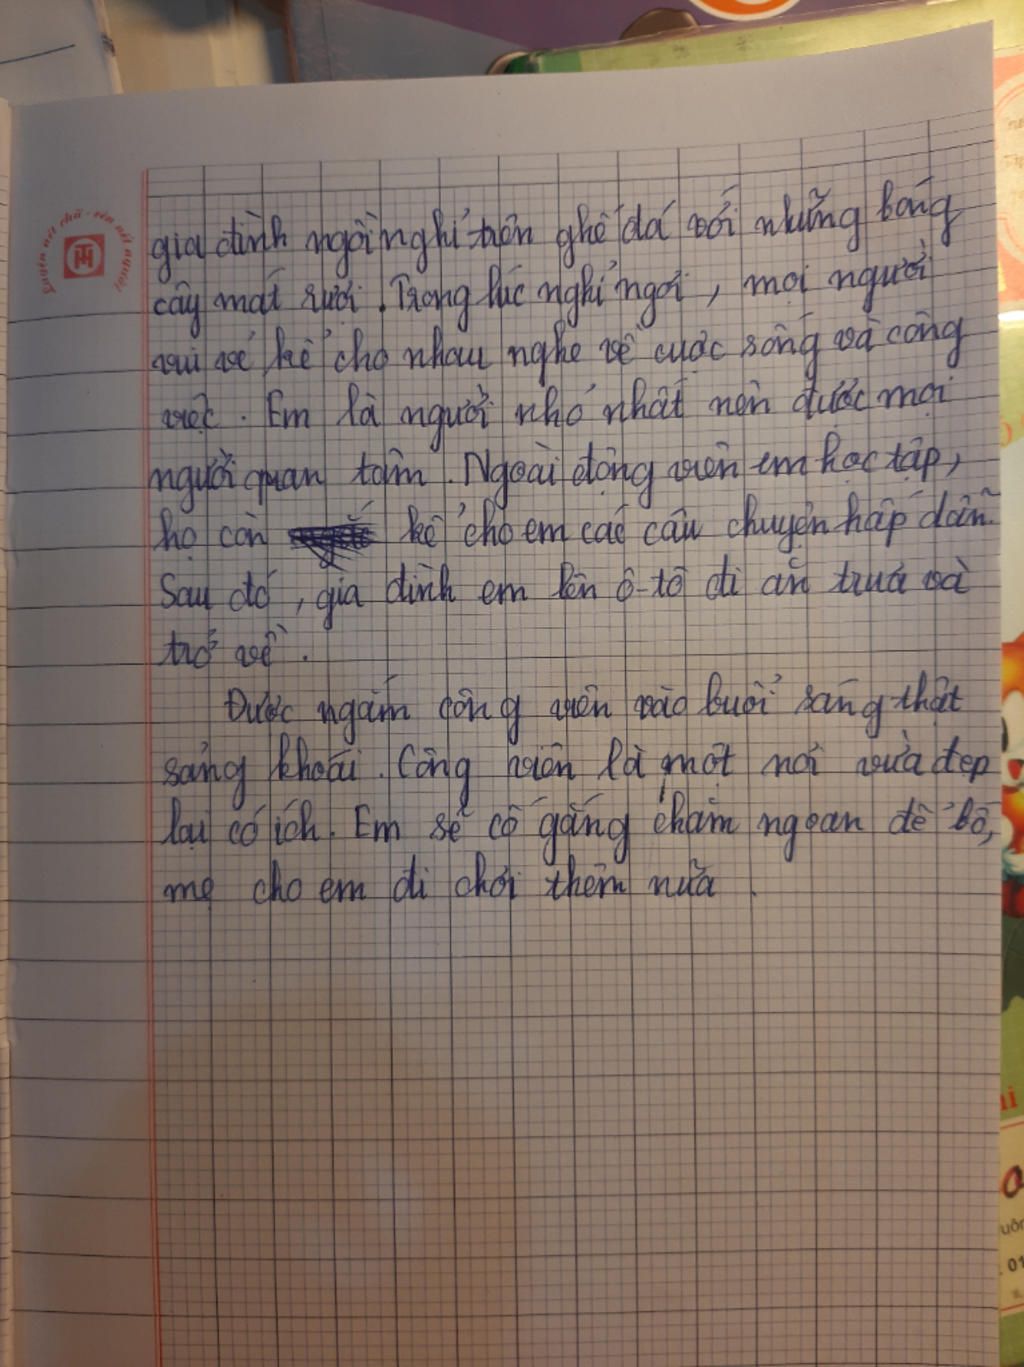 gia đình ngồi nghỉ trên ghế đá với những bóng
cây mát rười. Trong lúc nghỉ ngơi, mọi người
vui vẻ kể cho nhau nghe về cuộc sống và công
việc. Em là người nhỏ nhất nên được mọi
người quan tâm. Ngoài động viên em học tập,
họ còn kể cho em các câu chuyện hấp dẫn.
Sau đó, gia đình em lên ô-tô đi ăn trưa và
trở về.
Được ngắm công viên vào buổi sáng thật
sảng khoái. Công viên là một nơi vừa đẹp
lại có ích. Em sẽ cố gắng chăm ngoan để bố,
mẹ cho em đi chơi thêm nữa.
luyện nét chữ - rèn nết người
TH
01